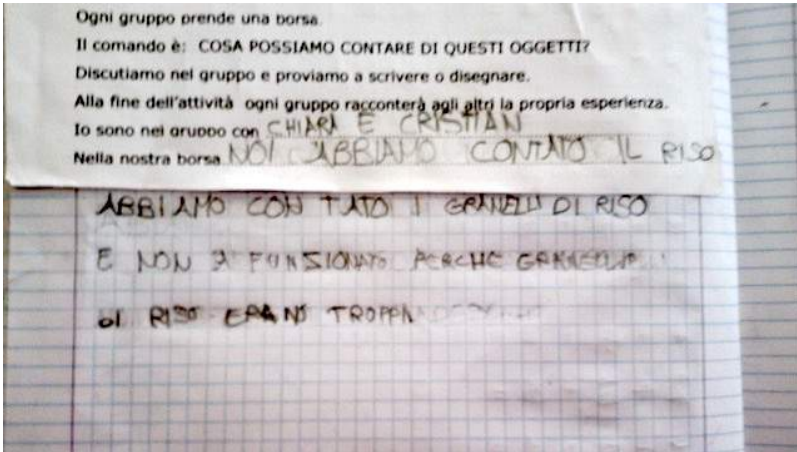 Ogni gruppo prende una borsa.
Il comando è: COSA POSSIAMO CONTARE DI QUESTI OGGETTI?
Discutiamo nel gruppo e proviamo a scrivere o disegnare.
Alla fine dell'attività ogni gruppo racconterà agli altri la propria esperienza.
Io sono nel gruppo con CHIARA E CRISTIAN
Nella nostra borsa NOI ABBIAMO CONTATO IL RISO
ABBIAMO CON TATO I GRANELLI DI RISO
E NON A FUNSIONATO PERCHE
DI RISO ERANO